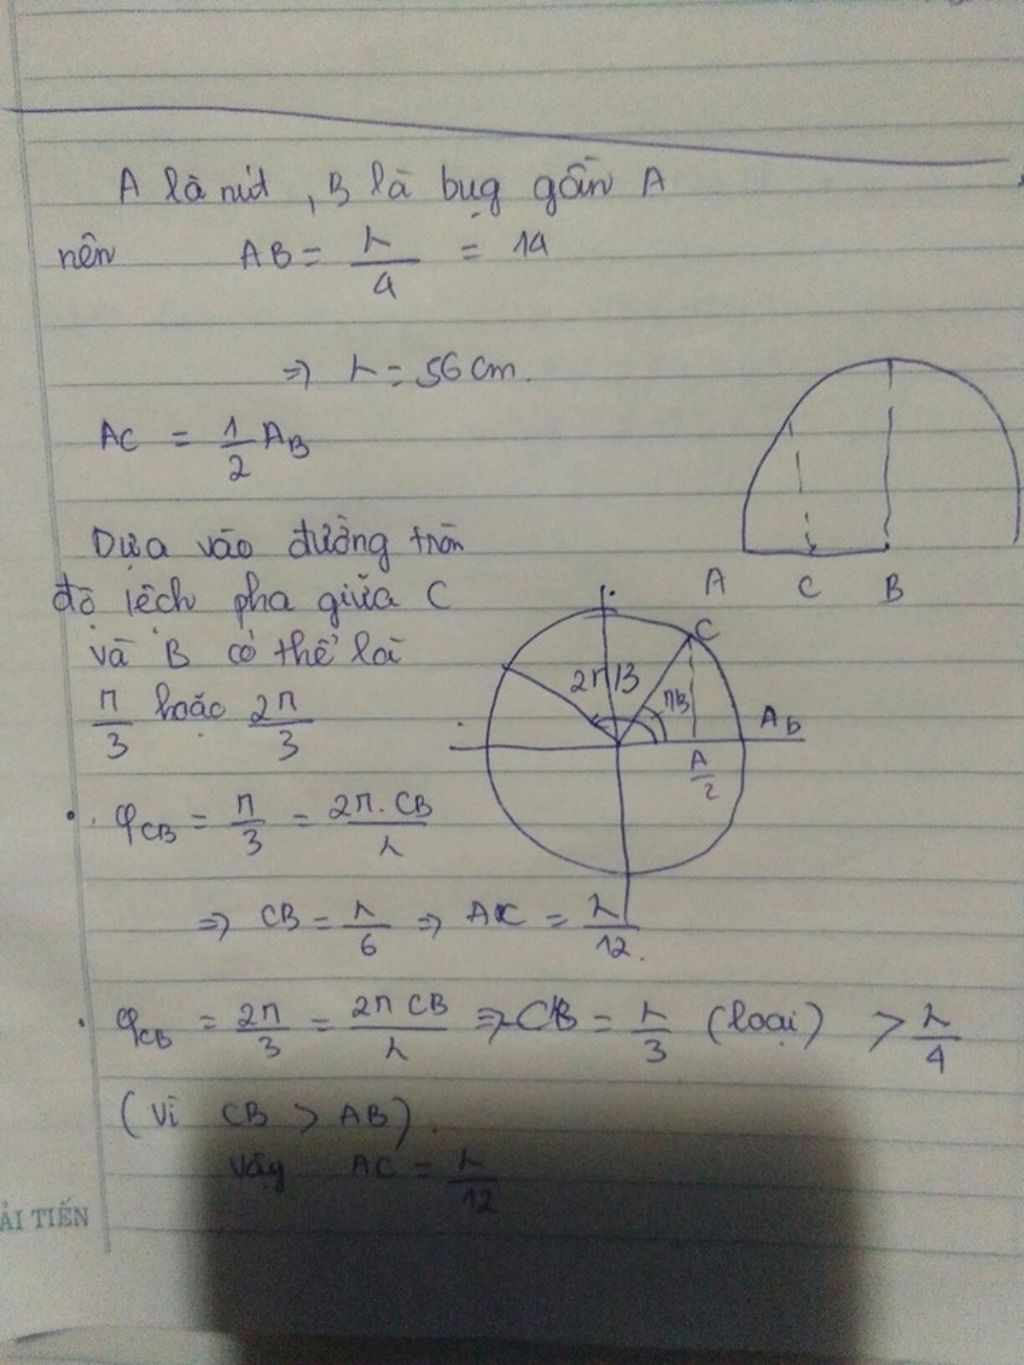 A là nút, B là bụg gần A
nên AB = λ/4 = 14
⇒ λ = 56 cm.
AC = 1/2 AB
Dựa vào đường tròn
độ lệch pha giữa C
và B có thể là
π/3 hoặc 2π/3
A C B
C
2π/3 π/3
Ab
A/2
φCB = π/3 = 2π.CB/λ
⇒ CB = λ/6 ⇒ AC = λ/12.
φCB = 2π/3 = 2π CB/λ ⇒ CB = λ/3 (loại) > λ/4
(Vì CB > AB).
Vậy AC = λ/12
ẢI TIẾN